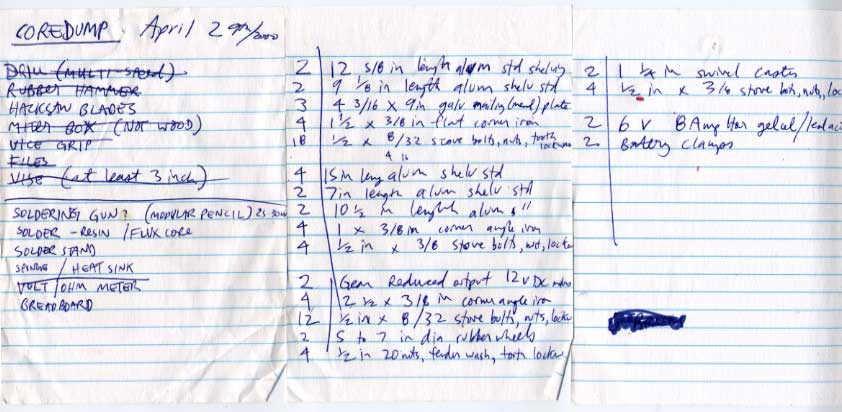 COREDUMP. April 29th/2000
DRILL (MULTI-SPEED)
RUBBER HAMMER
HACKSAW BLADES
MITER BOX (NOT WOOD)
VICE GRIP
FILES
VISE (at least 3 inch)
SOLDERING GUN? (MODULAR PENCIL) 25-30W
SOLDER - RESIN / FLUX CORE
SOLDER STAND
SPONGE / HEAT SINK
VOLT/OHM METER
BREADBOARD
2 12 5/8 in length alum std shelving
2 9 1/8 in length alum shelv std
3 4 3/16 x 9 in galv mailing (mend) plate
4 1 1/2 x 3/8 in flat corner iron
18 1/2 x 8/32 stove bolts, nuts, tooth lockwas
4 16
4 15 in leng alum shelv std
2 7 in length alum shelv std
2 10 1/2 in length alum s "
4 1 x 3/8 in corner angle iron
4 1/2 in x 3/8 stove bolts, nut, lockw
2 Gear Reduced output 12 v DC motors
4 2 1/2 x 3/8 in corner angle iron
12 1/2 in x 8/32 stove bolts, nuts, lockw
2 5 to 7 in dia rubber wheels
4 1/2 in 20 nuts, fender wash, tooth lockw
2 1 1/4 in swivel caster
4 1/2 in x 3/8 stove bolts, nuts, loc
2 6 V 8 Amp Hor gelcel/lead aci
2 Battery clamps